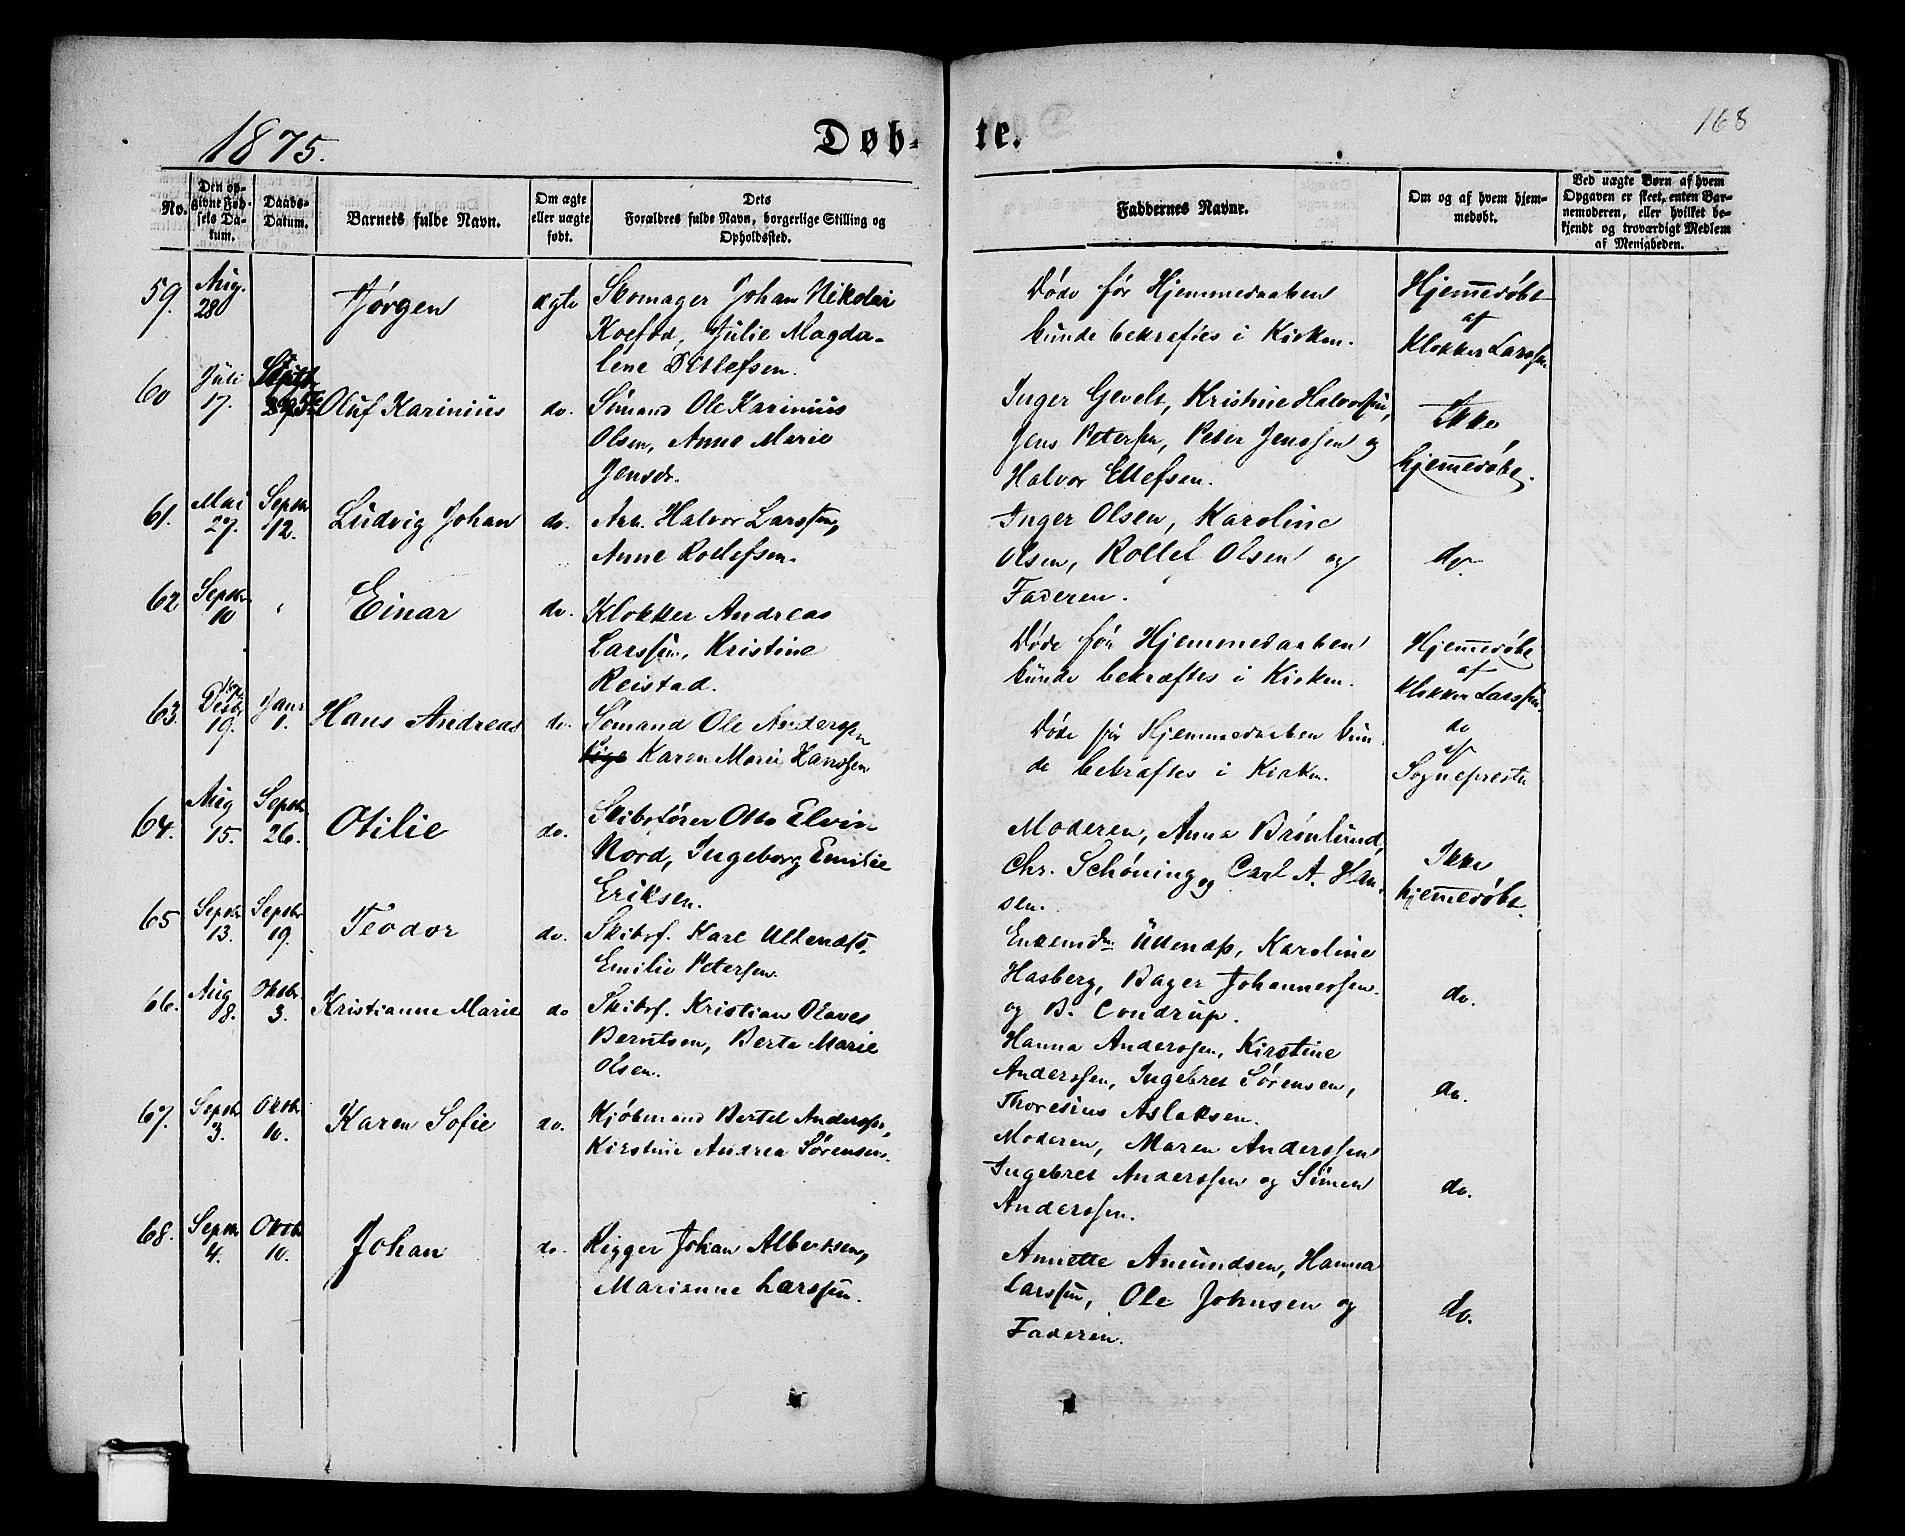 168
1875.
Døb-te.
No.
Den op-
givne Fød-
sels Da-
tum.
Daabs-
Datum.
Barnets fulde Navn.
Om ægte
eller uægte
født.
Dets
Forældres fulde Navn, borgerlige Stilling og
Opholdssted.
Faddernes Navne.
Om og af hvem hjem-
medøbt.
Ved uægte Børn af hvem
Opgaven er skeet, enten Bar-
nemoderen, eller hvilket be-
kjendt og troværdigt Medlem
af Menigheden.
59. Aug. 28 Jørgen ægte
Skomager Johan Nikolai
Koefod, Julie Magda-
lene Ditlefsen.
Døde før Hjemmedaaben
kunde bekræftes i Kirken.
Hjemmedøbt
af
Klokker Larssen
60 Juli 17. Septbr Oluf Karinius do.
Sømand Ole Karinius
Olsen, Anne Marie
Jensdr.
Inger Gevelt, Kristine Halvorsen,
Jens Petersen, Peter Jenssen og
Halvor Ellefsen.
Ikke
hjemmedøbt.
61. Mai 27. Septbr 12. Ludvig Johan do.
Arb. Halvor Larssen,
Anne Rollefsen.
Inger Olsen, Karoline
Olsen, Rollef Olsen og
Faderen.
do.
62 Septbr 10 Einar do.
Klokker Andreas
Larssen, Kristine
Reistad.
Døde før Hjemmedaaben
kunde bekræftes i Kirken.
Hjemmedøbt
af
Klokker Larssen.
63. Desbr 19. Janr 1. Hans Andreas do.
Sømand Ole Anderssen
Karen Marie Hanssen
Døde før Hjemmedaaben kun-
de bekræftes i Kirken.
do
af
Sognepresten
64. Aug 15. Septbr 26. Otilie do.
Skibsfører Otto Elvin
Nord, Ingeborg Emilie
Eriksen.
Moderen, Anna Brønlund,
Chr. Schøning og Carl A. Han-
sen.
Ikke
hjemmedøbt.
65 Septbr 13. Septbr 19. Teodor do.
Skibsf. Karl
Emilie Petersen.
Karoline
Hasberg, Bager Johannessen
og B. Condrup.
do.
66. Aug 8. Oktbr. 3. Kristianne Marie do
Skibsf. Kristian Olaves
Berntsen, Berte Marie
Olsen.
Hanna Anderssen, Kirstine
Anderssen, Ingebret Sørensen,
Thoresius Aslaksen.
do.
67. Septbr 3. Oktbr 10. Karen Sofie do.
Kjøbmand Bertel Anderssen,
Kirstine Andrea Sørensen.
Moderen, Maren Anderssen
Ingebret Anderssen og Simen
Anderssen.
do.
68. Septbr 4. Oktbr 10. Johan do.
Rigger Johan Albertsen,
Marianne Larssen.
Annette Amundsen, Hanna
Larssen, Ole Johnsen og
Faderen.
do.